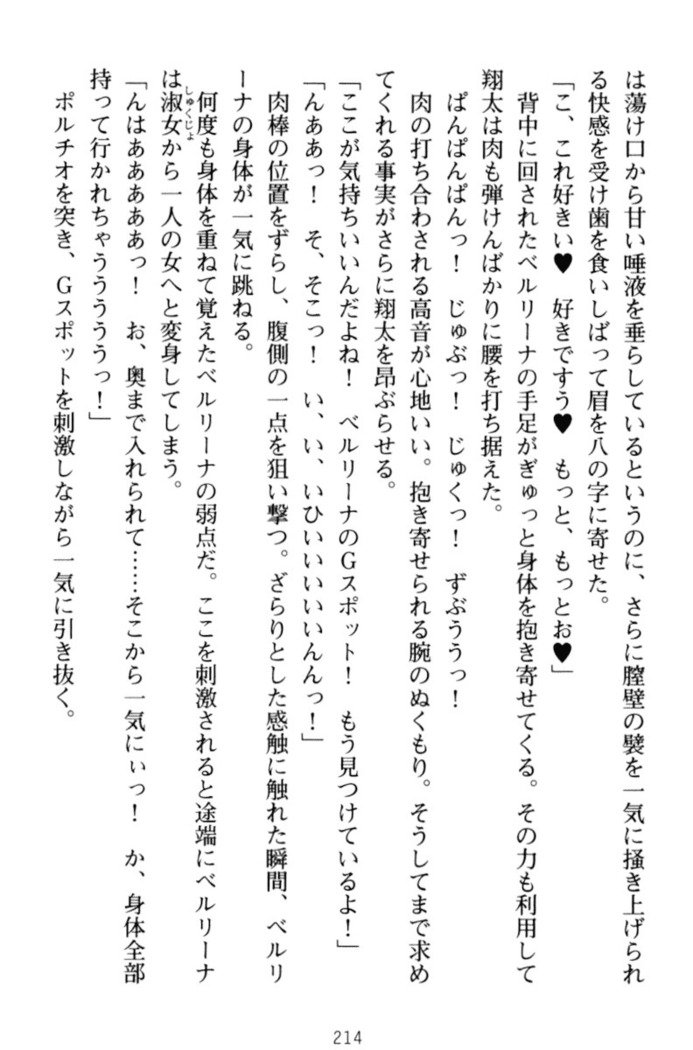 は蕩け口から甘い唾液を垂らしているというのに、さらに膣壁の襞を一気に掻き上げられ
る快感を受け歯を食いしばって眉を八の字に寄せた。
「こ、これ好きい♥　好きですう♥　もっと、もっとお♥」
背中に回されたベルリーナの手足がぎゅっと身体を抱き寄せてくる。その力も利用して
翔太は肉も弾けんばかりに腰を打ち据えた。
ぱんぱんぱんっ！　じゅぶっ！　じゅくっ！　ずぶううっ！
肉の打ち合わされる高音が心地いい。抱き寄せられる腕のぬくもり。そうしてまで求め
てくれる事実がさらに翔太を昂ぶらせる。
「ここが気持ちいいんだよね！　ベルリーナのGスポット！　もう見つけているよ！」
「んああっ！　そ、そこっ！　い、い、いひいいいいいんんっ！」
肉棒の位置をずらし、腹側の一点を狙い撃つ。ざらりとした感触に触れた瞬間、ベルリ
ーナの身体が一気に跳ねる。
何度も身体を重ねて覚えたベルリーナの弱点だ。ここを刺激されると途端にベルリーナ
は淑女しゅくじょから一人の女へと変身してしまう。
「んはあああああっ！　お、奥まで入れられて……そこから一気にぃっ！　か、身体全部
持って行かれちゃうううううっ！」
ポルチオを突き、Gスポットを刺激しながら一気に引き抜く。
214